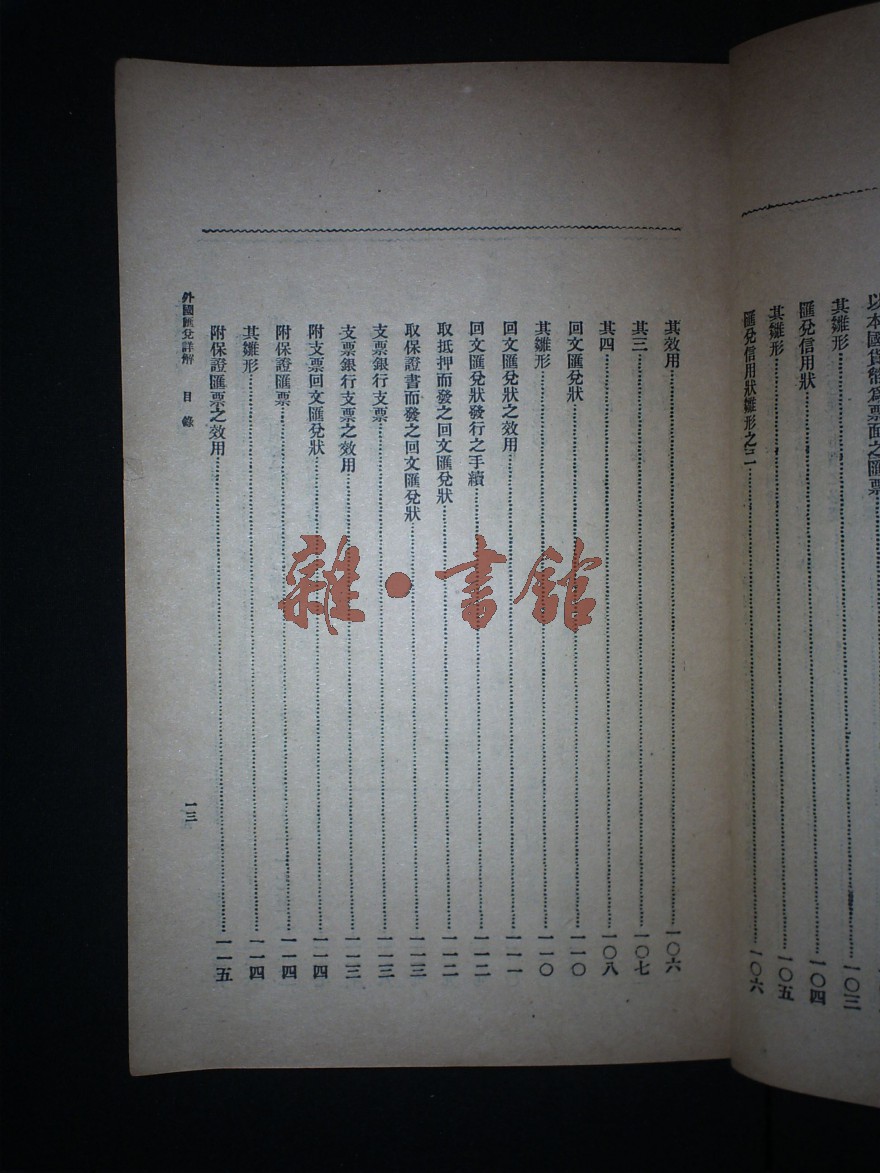 以本國貨幣爲票面之匯票
其雛形……一〇三
匯兌信用狀……一〇四
其雛形……一〇五
匯兌信用狀雛形之二……一〇六
其效用……一〇六
其三……一〇七
其四……一〇八
回文匯兌狀……一一〇
其雛形……一一〇
回文匯兌狀之效用……一一一
回文匯兌狀發行之手續……一一二
取抵押而發之回文匯兌狀……一一二
取保證書而發之回文匯兌狀……一一三
支票銀行支票……一一三
支票銀行支票之效用……一一三
附支票回文匯兌狀……一一四
附保證匯票……一一四
其雛形……一一四
附保證匯票之效用……一一五
外國匯兌詳解 目錄 一三
雜·書館